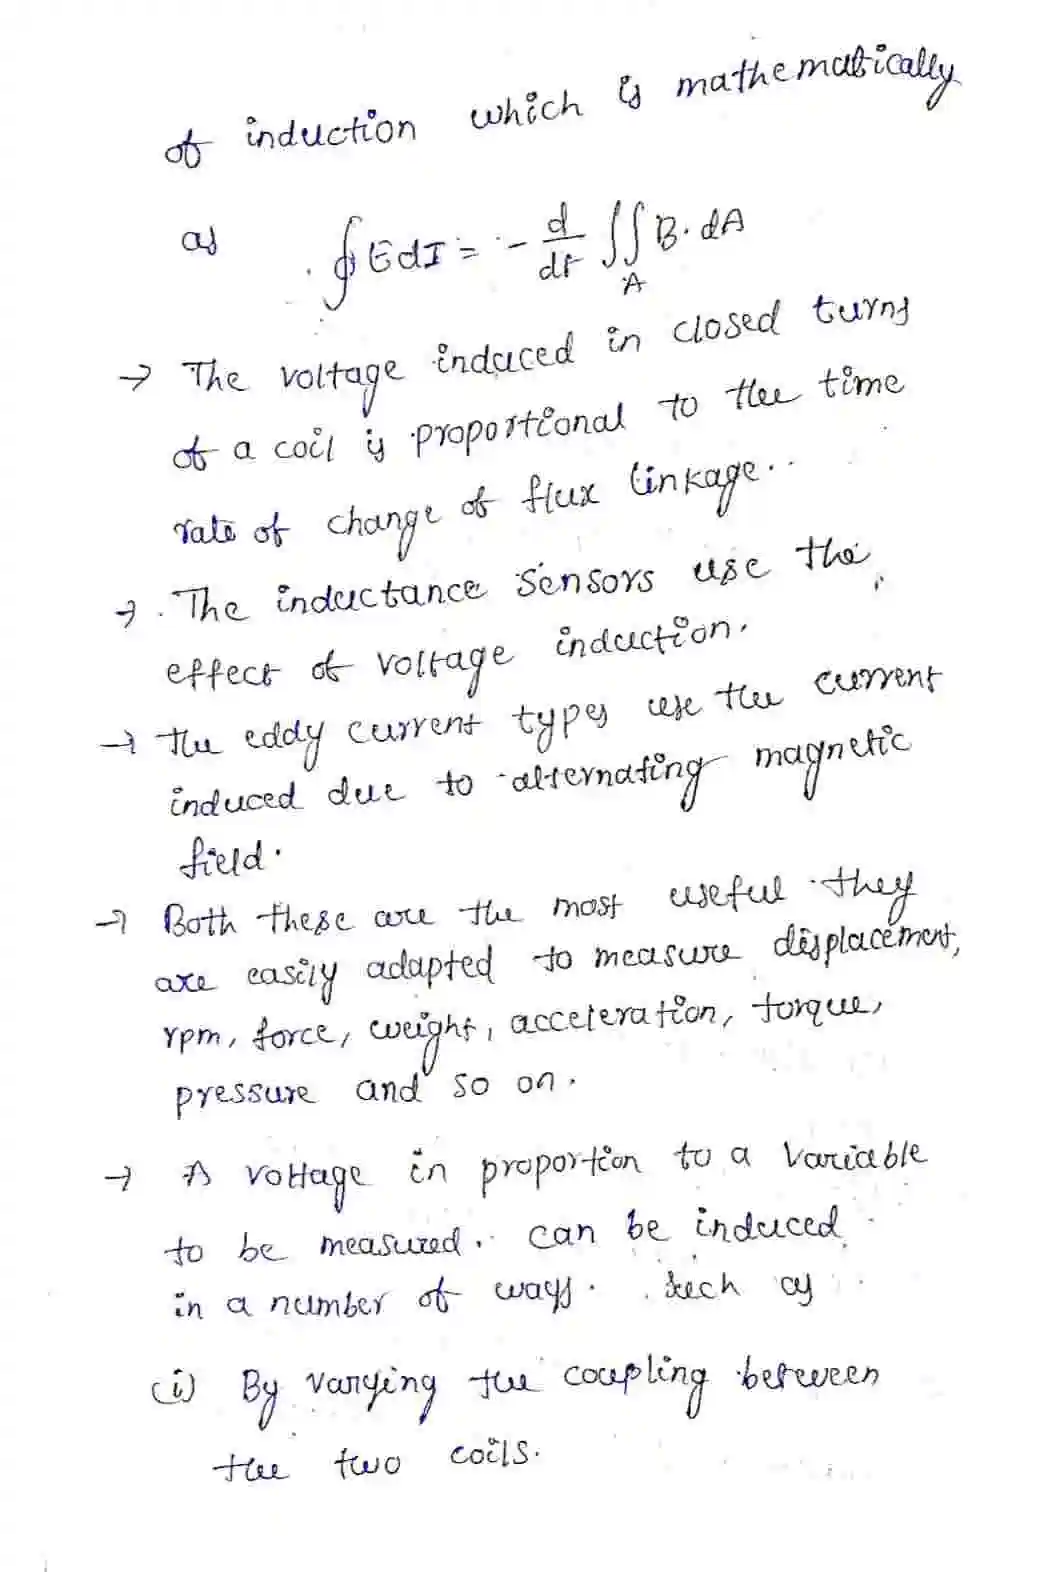 of induction which is mathematically
as ∮EdI = - d/dt ∬_A B. dA
→ The voltage induced in closed turns
of a coil is proportional to the time
rate of change of flux linkage..
→ The inductance sensors use the
effect of voltage induction.
→ The eddy current types use the current
induced due to alternating magnetic
field.
→ Both these are the most useful they
are easily adapted to measure displacement,
rpm, force, weight, acceleration, torque,
pressure and so on.
→ A voltage in proportion to a variable
to be measured. can be induced
in a number of ways. such as
(i) By varying the coupling between
the two coils.